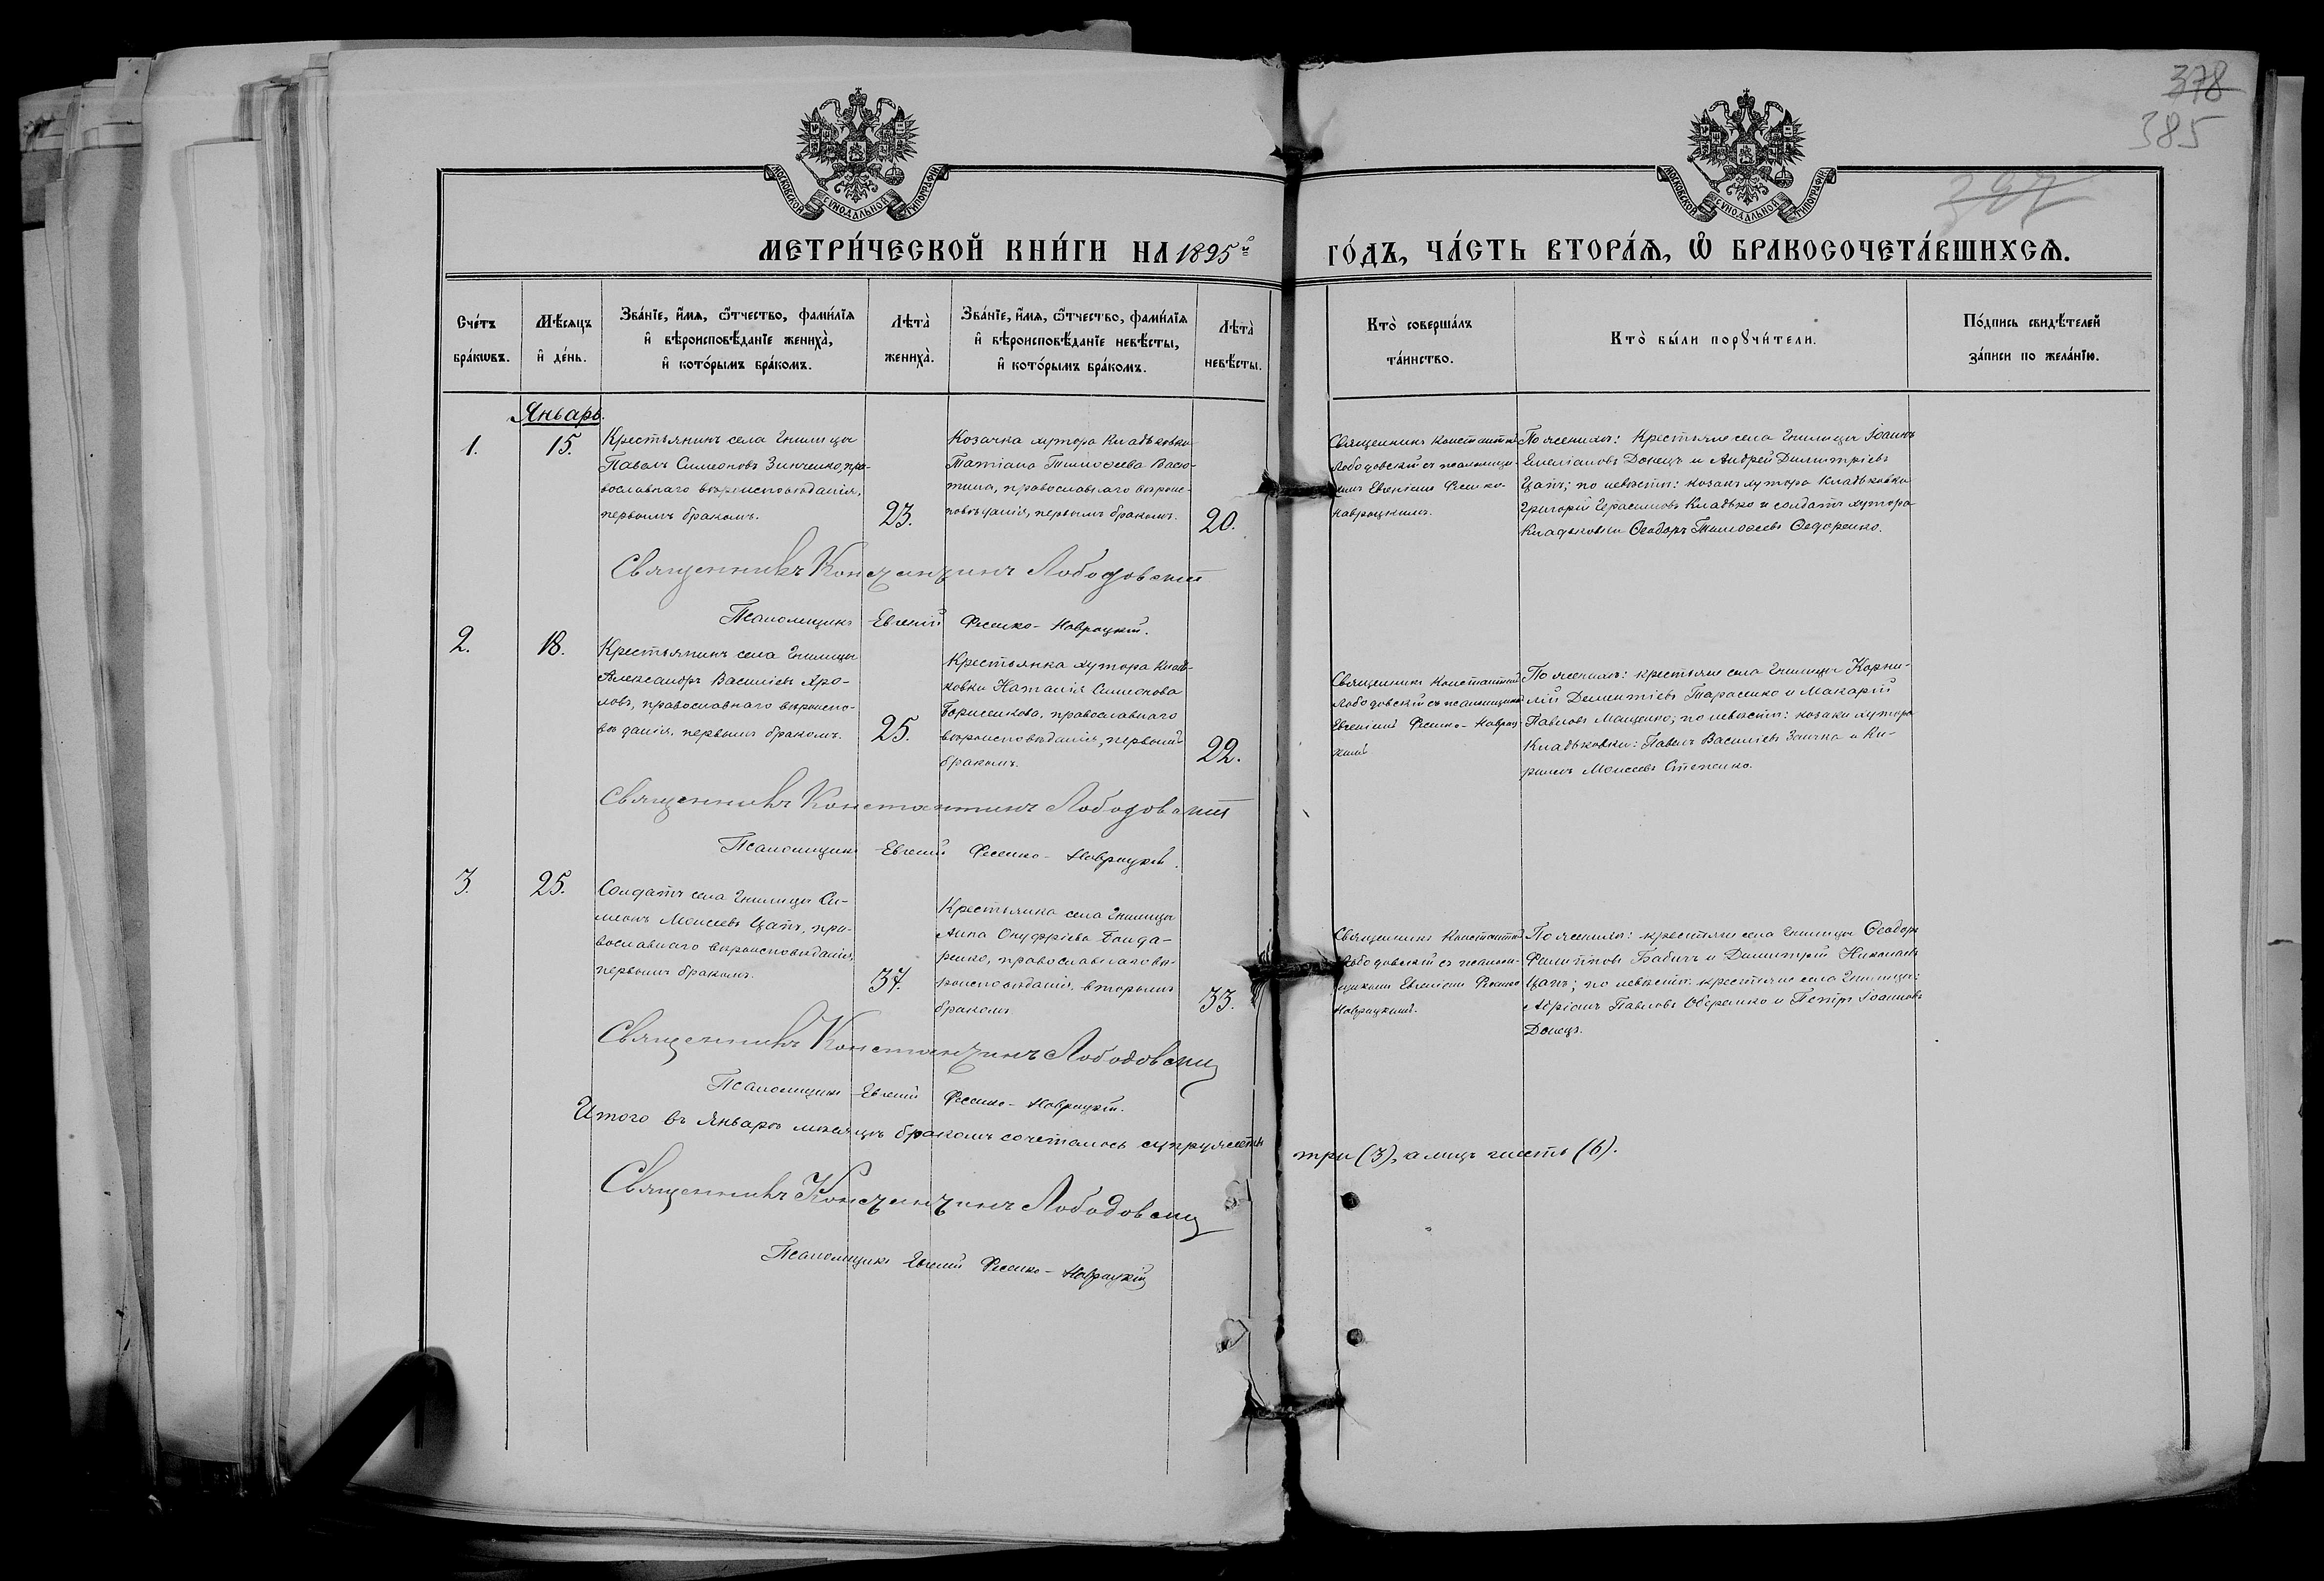 378
385
МОСКОВСКОЙ СУНОДАЛЬНОЙ ТИПОГРАФІИ
МОСКОВСКОЙ СУНОДАЛЬНОЙ ТИПОГРАФІИ
МЕТРИ́ЧЕСКОЙ КНИ́ГИ НА 1895й ГО́ДЪ, ЧА́СТЬ ВТОРА́Я, Ѡ БРАКОСОЧЕТА́ВШИХСЯ.
Сче́тъ бра́кѡвъ.
Мѣ́сяцъ и де́нь.
Зва́нїе, и́мя, ѻ҆́тчество, фами́лїя
и вѣроисповѣ́данїе жениха̀,
и кото́рымъ бра́комъ.
Лѣта̀ жениха̀.
Зва́нїе, и́мя, ѻ҆́тчество, фами́лїя
и вѣроисповѣ́данїе невѣ́сты,
и кото́рымъ бра́комъ.
Лѣта̀ невѣ́сты.
Кто̀ соверша́лъ
та́инство.
Кто̀ бы́ли порꙋчи́тели.
По́дпись свидѣ́телей
за́писи по жела́нїю.
Январь.
1.
15.
Крестьянинъ села Гнилицы
Павелъ Симеоновъ Зинченко, пра-
вославнаго вѣроисповѣданія,
первымъ бракомъ.
23.
Козачка хутора Кладьковки
Татіана Тимоѳеева Васю-
тина, православнаго вѣроис-
повѣданія, первымъ бракомъ.
20.
Священникъ Константинъ
Лободовскій съ псаломщи-
комъ Евгеніемъ Фесенко-
Навроцкимъ.
По женихѣ: Крестьяне села Гнилицы Іоаннъ
Емеліановъ Донецъ и Андрей Димитріевъ
Цапъ; по невѣстѣ: козакъ хутора Кладьковки
Григорій Герасимовъ Кладько и солдатъ хутора
Кладьковки Ѳеодоръ Тимоѳеевъ Ѳедоренко.
Священникъ Константинъ Лободовскій
Псаломщикъ Евгеній Фесенко-Навроцкій.
2.
18.
Крестьянинъ села Гнилицы
Александръ Василіевъ
православнаго вѣроиспо-
вѣданія, первымъ бракомъ.
25.
Крестьянка хутора Кладь-
ковки Наталія Симеонова
Борисенкова, православнаго
вѣроисповѣданія, первымъ
бракомъ.
22.
Священникъ Константинъ
Лободовскій съ псаломщикомъ
Евгеніемъ Фесенко-Навроц-
кимъ
По женихѣ: крестьяне села Гнилицы Корни-
лій Дементіевъ Тарасенко и Макарій
Павловъ Мащенко; по невѣстѣ: козаки хутора
Кладьковки: Павелъ Василіевъ Заичка и Ки-
риллъ Моисеевъ Степенко.
Священникъ Константинъ Лободовскій
Псаломщикъ Евгеній Фесенко-Навроцкій.
3.
25.
Солдатъ села Гнилицы Си-
меонъ Моисеевъ Цапъ, пра-
вославнаго вѣроисповѣданія,
первымъ бракомъ.
37.
Крестьянка села Гнилицы
Анна Онуфріева Бонда-
ренко, православнаго вѣ-
роисповѣданія, вторымъ
бракомъ.
33.
Священникъ Константинъ
Лободовскій съ псалом-
щикомъ Евгеніемъ Фесенко
Навроцкимъ.
По женихѣ: крестьяне села Гнилицы Ѳеодоръ
Филипповъ Бабичъ и Димитрій Николаевъ
Цапъ; по невѣстѣ: крестьяне села Гнилицы:
Адріанъ Павловъ Оверемко и Петръ Іоанновъ
Донецъ.
Священникъ Константинъ Лободовскій
Псаломщикъ Евгеній Фесенко-Навроцкій.
Итого въ Январѣ мѣсяцѣ бракомъ сочеталось супружествъ три (3), а лицъ шесть (6).
Священникъ Константинъ Лободовскій
Псаломщикъ Евгеній Фесенко-Навроцкій